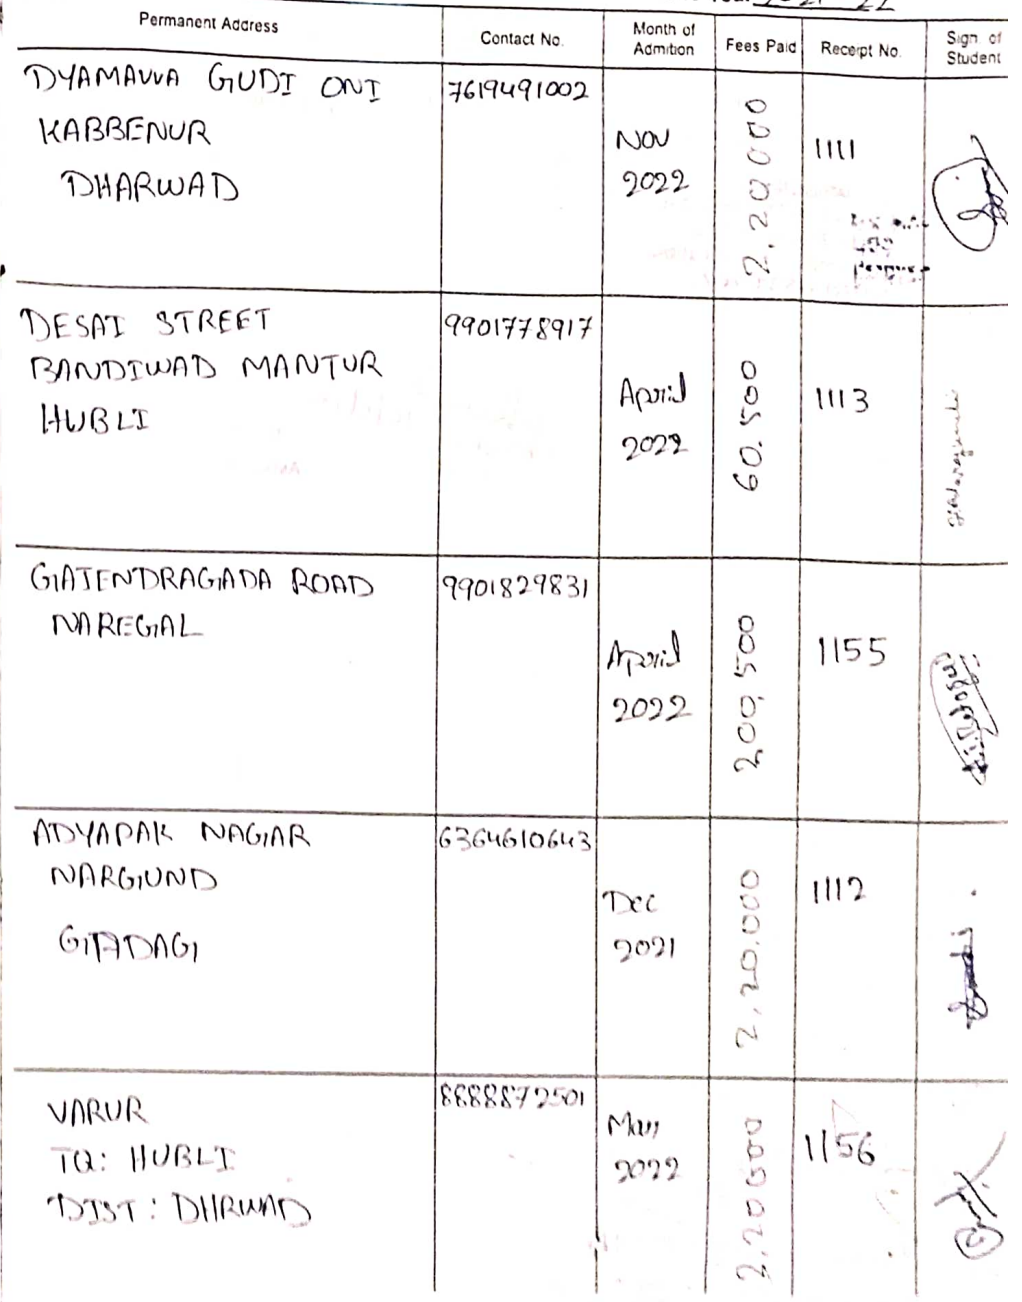 2021-22
Permanent Address
Contact No.
Month of
Admition
Fees Paid
Receipt No.
Sign of
Student
DYAMAVVA GUDI ONI
KABBENUR
DHARWAD
7619491002
Nov
2022
2,20000
1111
DESAI STREET
BANDIWAD MANTUR
HUBLI
9901778917
April
2022
60.500
1113
GAJENDRAGADA ROAD
NAREGAL
9901829831
April
2022
200,500
1155
ADYAPAK NAGAR
NARGUND
GADAG
6364610643
Dec
2021
2,20.000
1112
VARUR
TQ: HUBLI
DIST: DHRWAD
8888872501
2022
1156